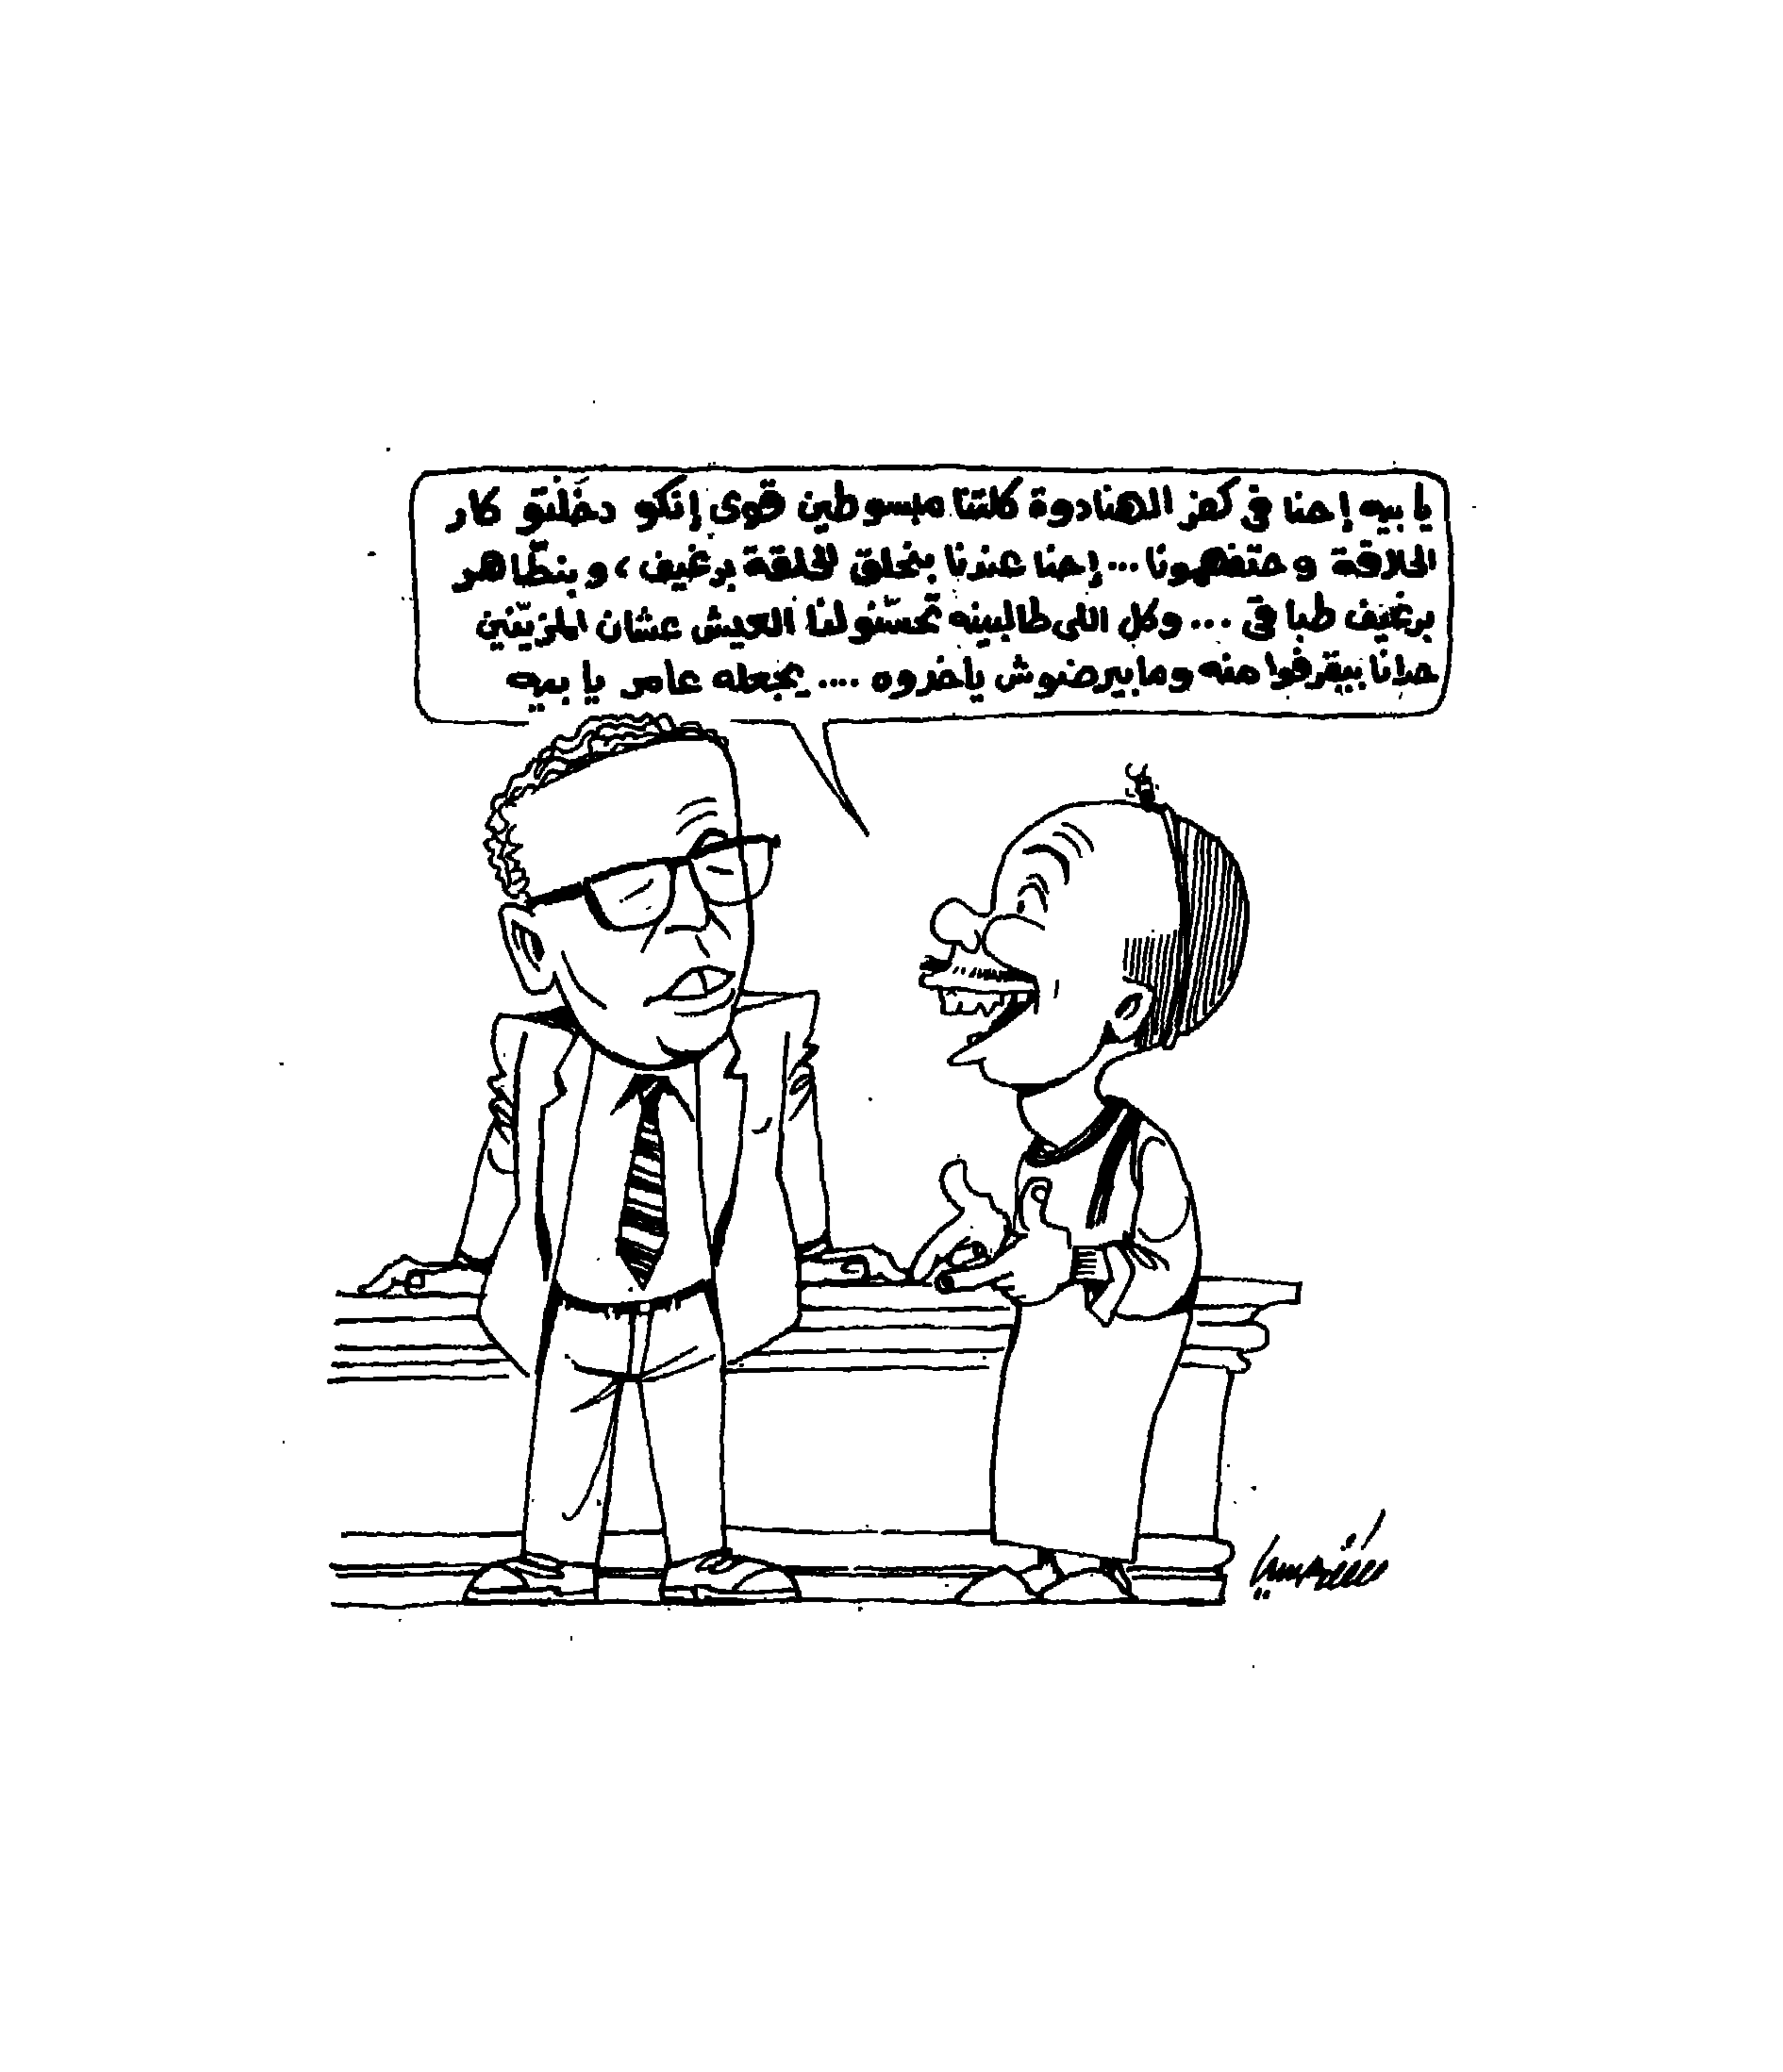 يا بيه إحنا في كفر الهنادوة كلتنا مبسوطين قوى إنكو دخلتو كار
الحلاقة وحتفهمونا... إحنا عندنا بنحلق الحلقة برغيف، وبنطاهر
برغيف طباقى... وكل اللى طالبينه تحسنو لنا العيش عشان المزينين
حدانا بيقرفوا منه وما بيرضوش ياخدوه .... يجعله عامر يا بيه